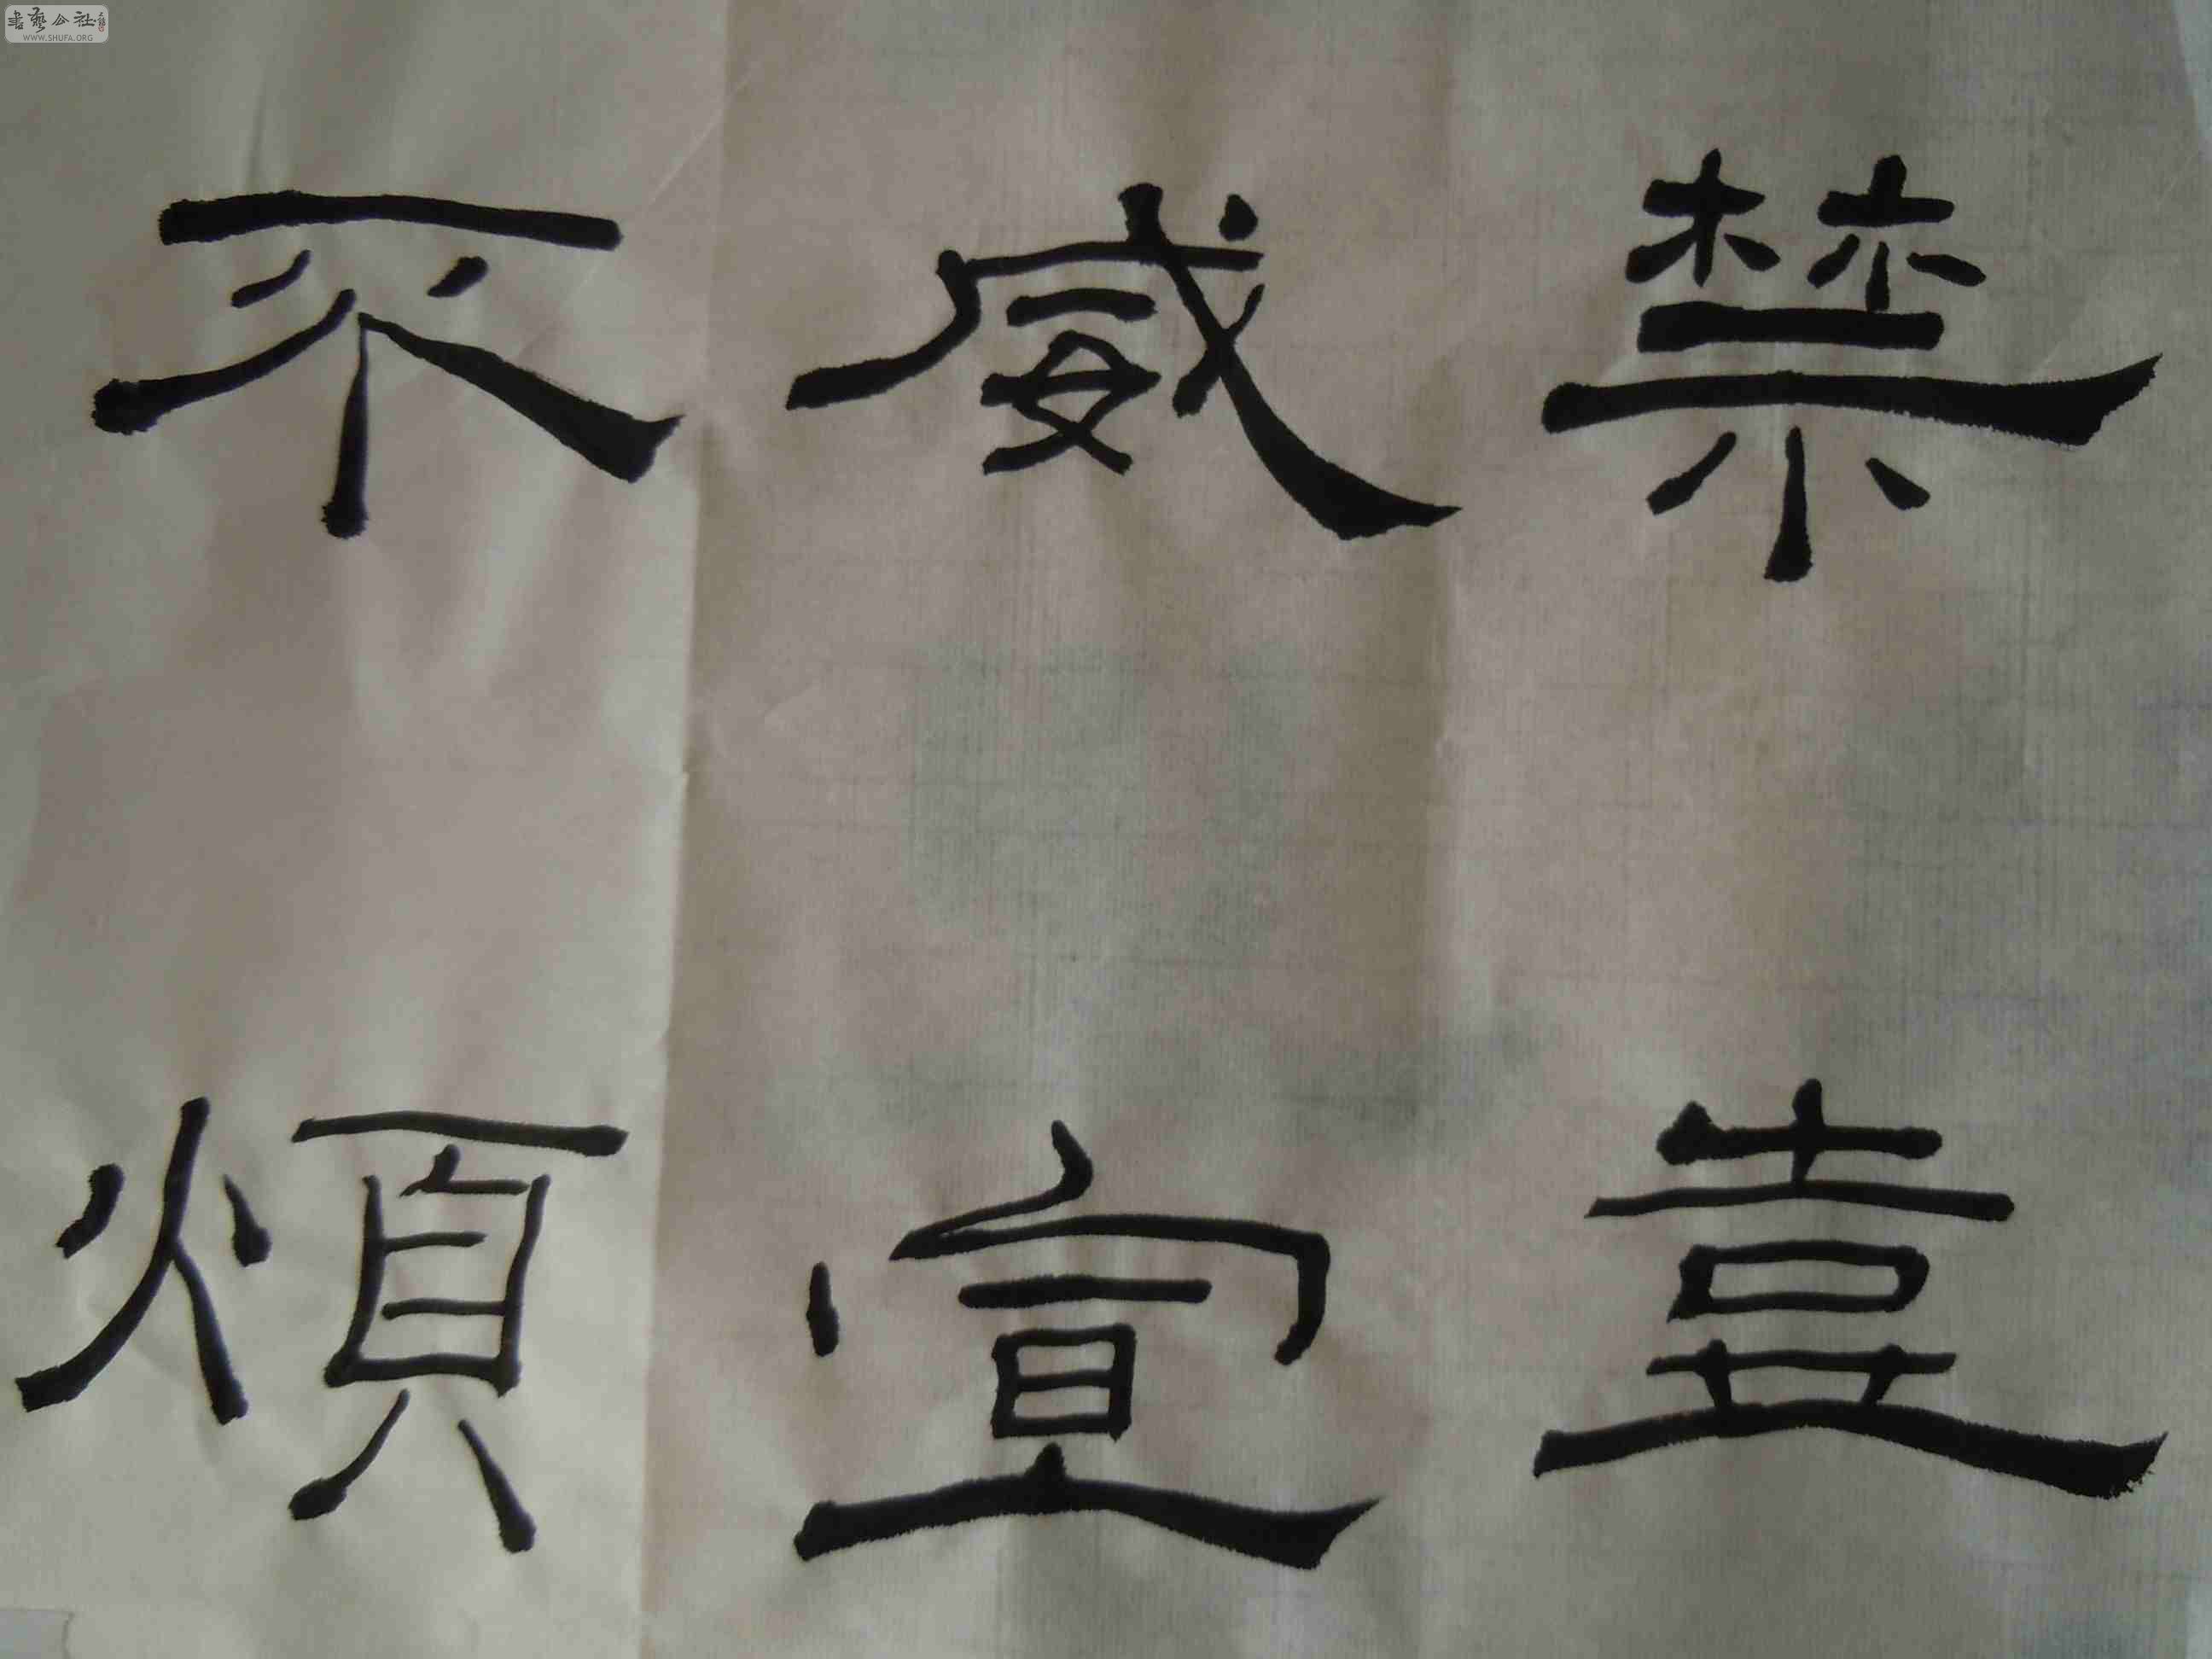 禁壹
威宣
不煩
書藝公社
WWW.SHUFA.ORG